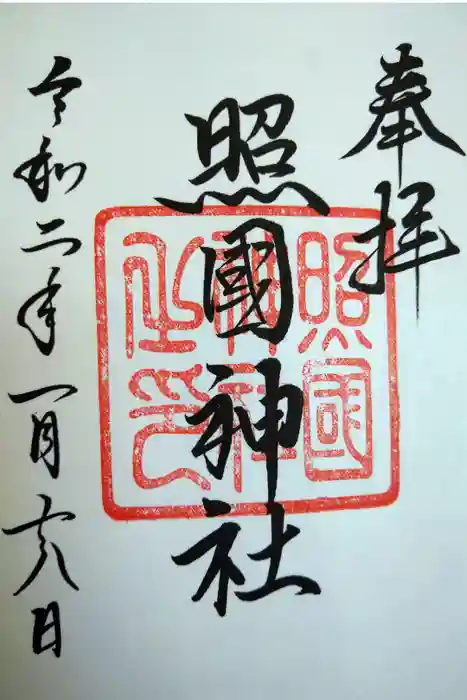 奉拝
照國神社
令和二年一月 日
照国
神社
之印